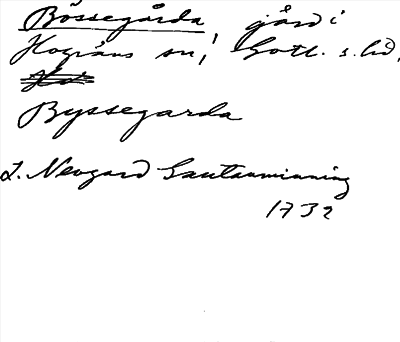 Bössegårda gård i
Hogräns sn, Gotl. s. hd.
Byssegarda
L. Neogard Gautauminning
1732